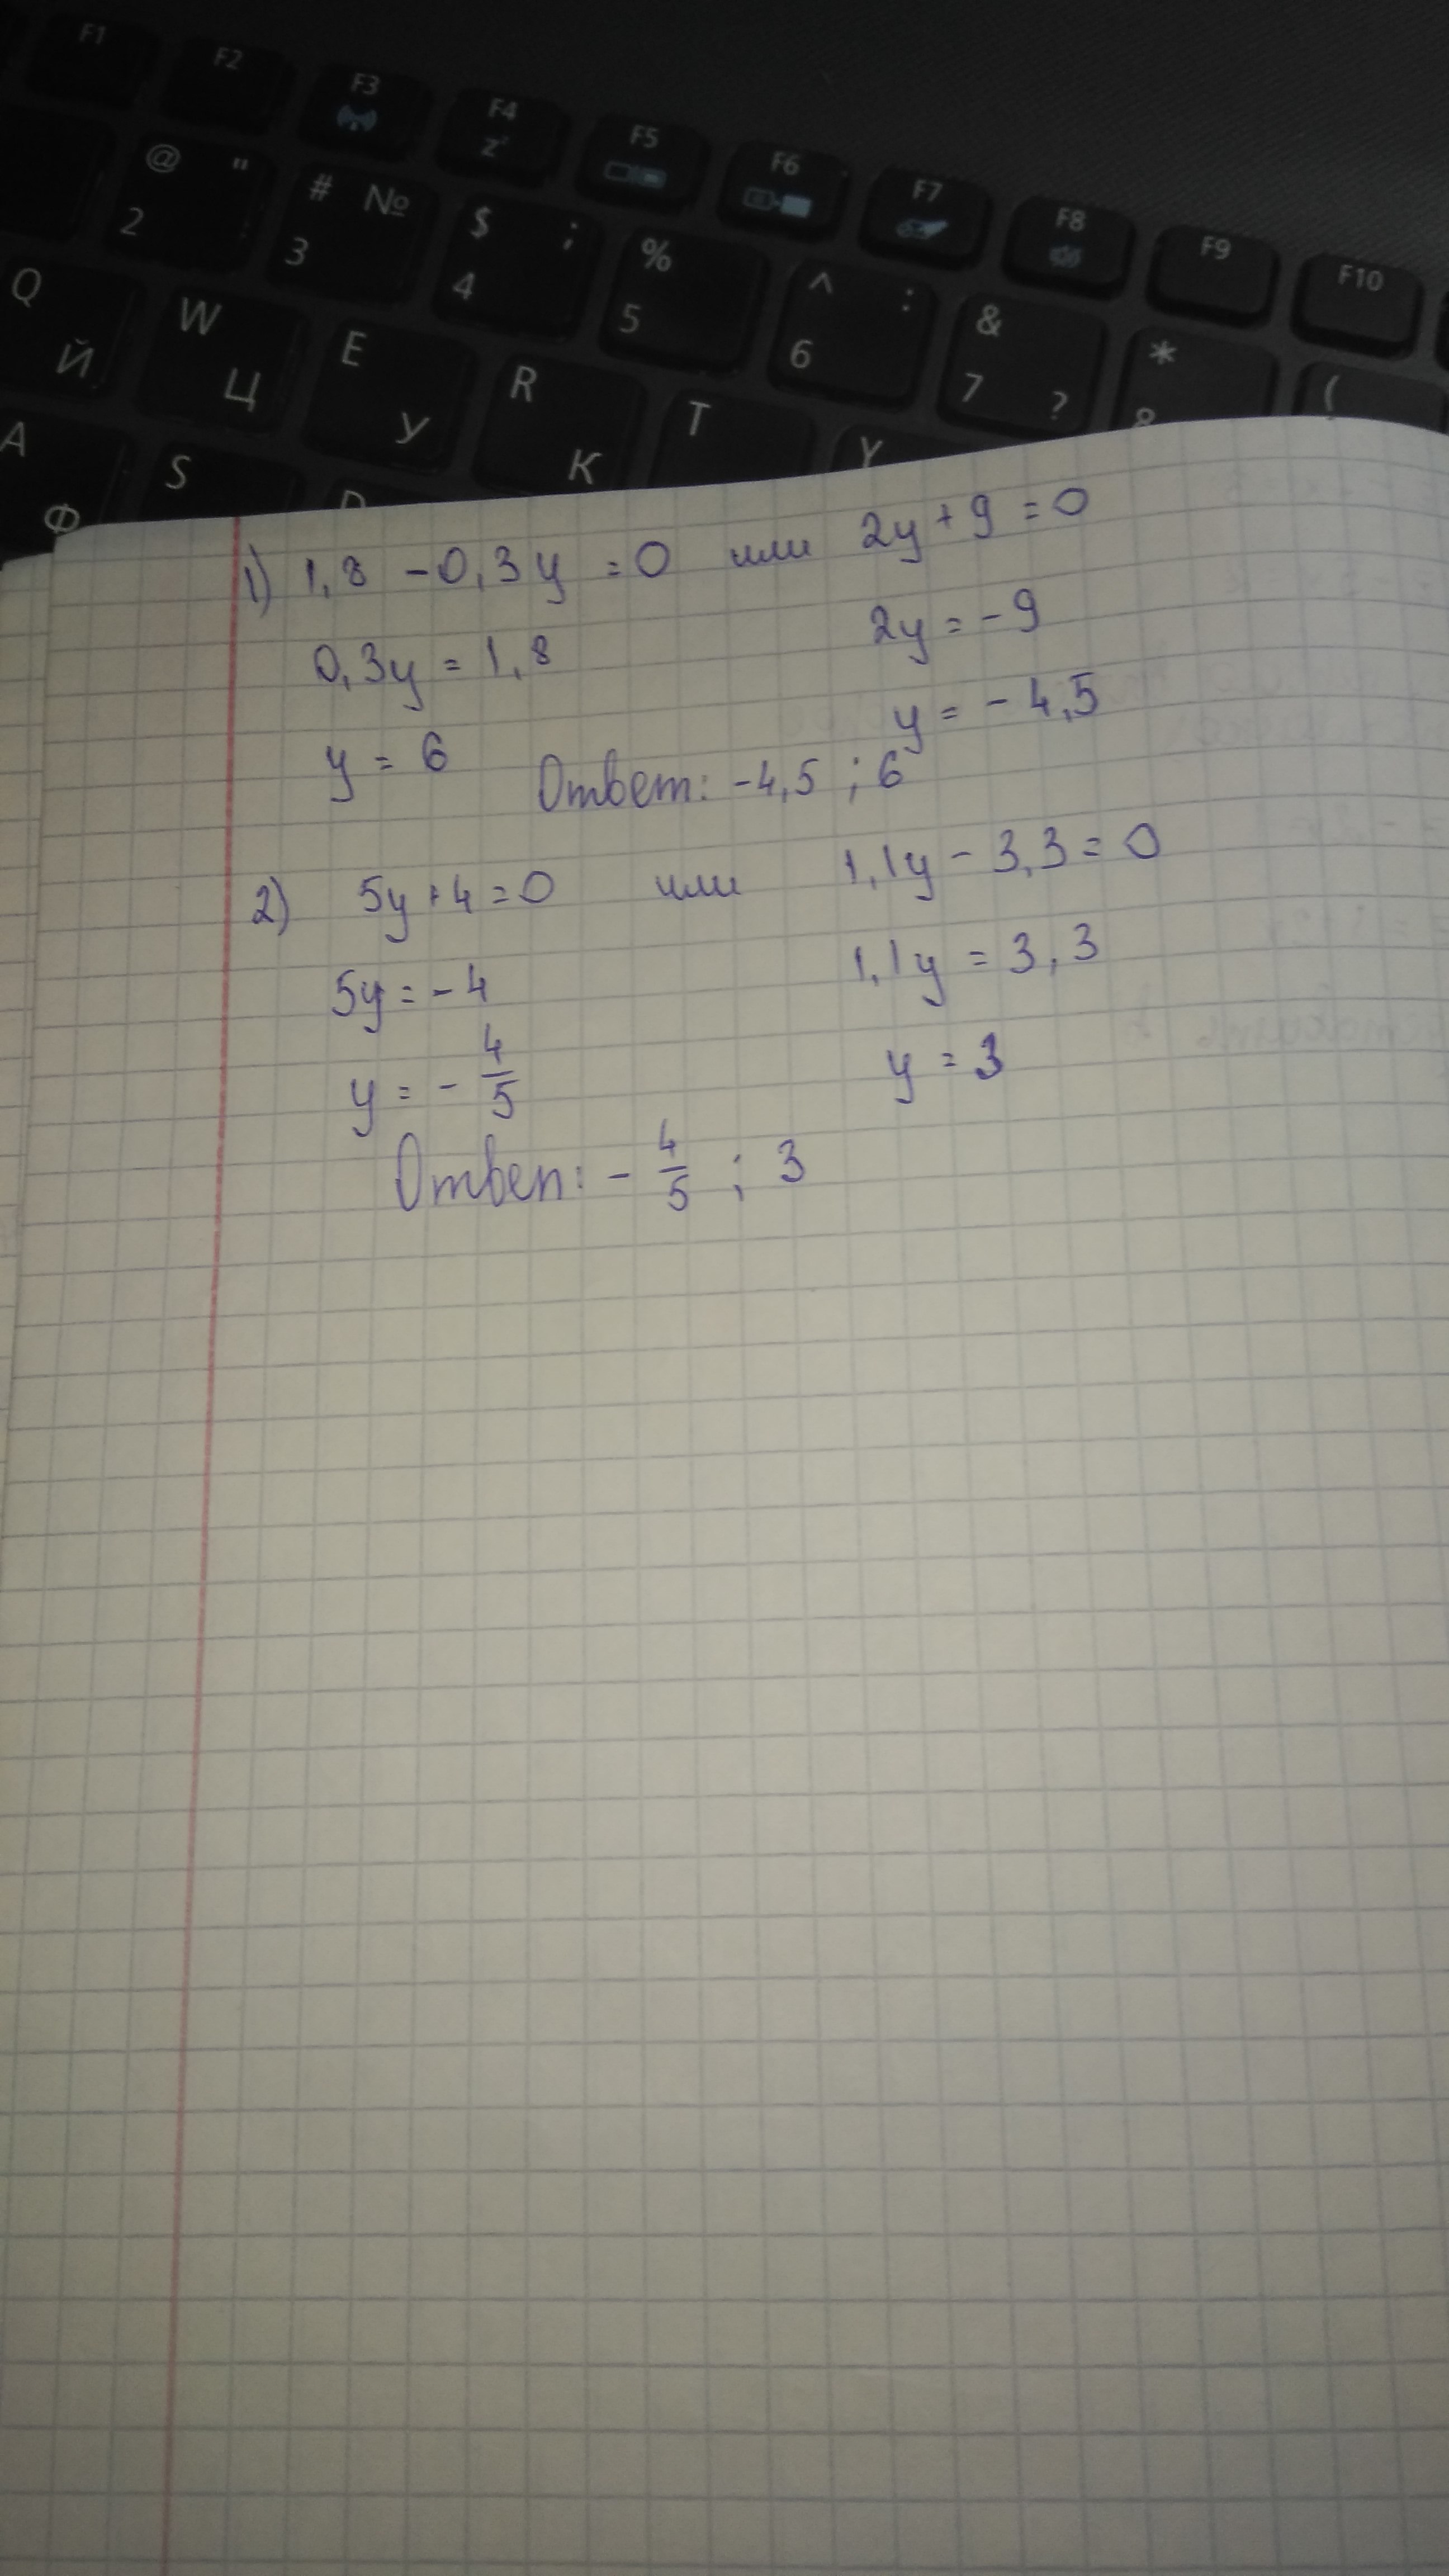 F1 F2 F3 F4 F5 F6 F7 F8 F9 F10
z
@ " 2 # № 3 $ ; 4 % 5 ^ : 6 & 7 ? * 8 (
Q Й W Ц E У R К T Y
A Ф S D
1) 1,8 - 0,3y = 0 или 2y + 9 = 0
0,3y = 1,8 2y = - 9
y = 6 y = - 4,5
Ответ: -4,5 ; 6
2) 5y + 4 = 0 или 1,1y - 3,3 = 0
5y = - 4 1,1y = 3,3
y = - 4/5 y = 3
Ответ: - 4/5 ; 3